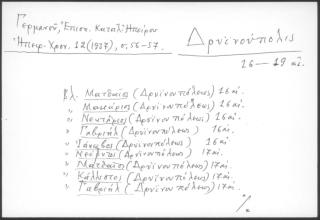 Γερμανοῦ, Ἐπισκ. Κατάλ. Ἠπείρου
Ἠπειρ. Χρον. 12 (1937), σ. 56-57.
Δρυϊνούπολις
16 – 19 αἰ.
Βλ. Ματθαῖος (Δρυϊνουπόλεως) 16 αἰ.
" Μακάριος (Δρυϊνουπόλεως) 16 αἰ.
" Νεκτάριος (Δρυϊνουπόλεως) 16 αἰ.
" Γαβριήλ (Δρυϊνουπόλεως) 16 αἰ.
" Ἰάκωβος (Δρυϊνουπόλεως) 16 αἰ.
" (Δρυϊνουπόλεως) 17 αἰ.
" Ματθαῖος (Δρυϊνουπόλεως) 17 αἰ.
" Κάλλιστος (Δρυϊνουπόλεως) 17 αἰ.
" Γαβριήλ (Δρυϊνουπόλεως) 17 αἰ.
./.